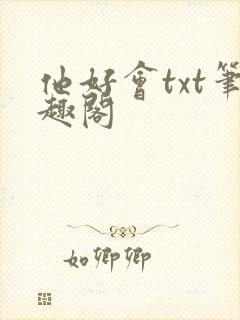 他好會txt筆
趣閣
如卿卿